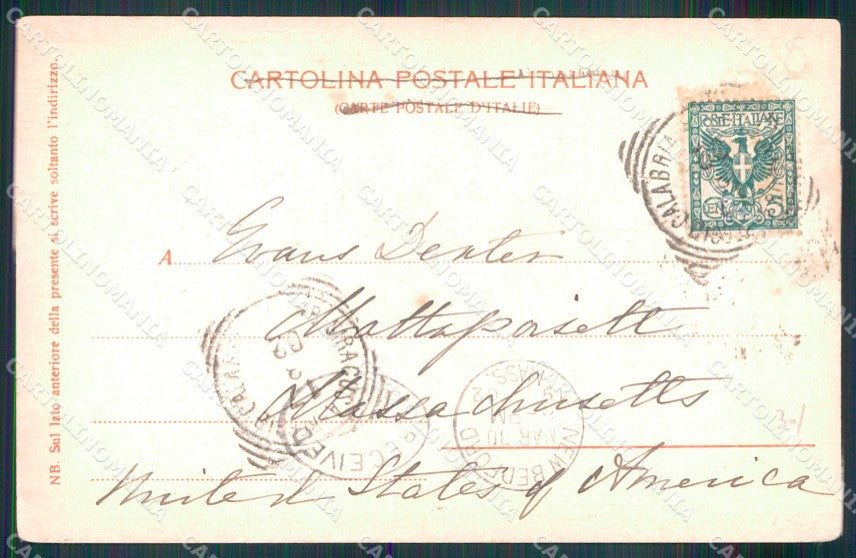 CARTOLINA POSTALE ITALIANA
(CARTE POSTALE D'ITALIE)
NB. Sul lato anteriore della presente si scrive soltanto l'indirizzo.
POSTE ITALIANE
5
CALABRIA
A Evans Dexter
Mattapoisett
Massachusetts
United States of America
RECEIVED
NEW BEDFORD
MASS.
MAR 10
CARTOLINOMANIA